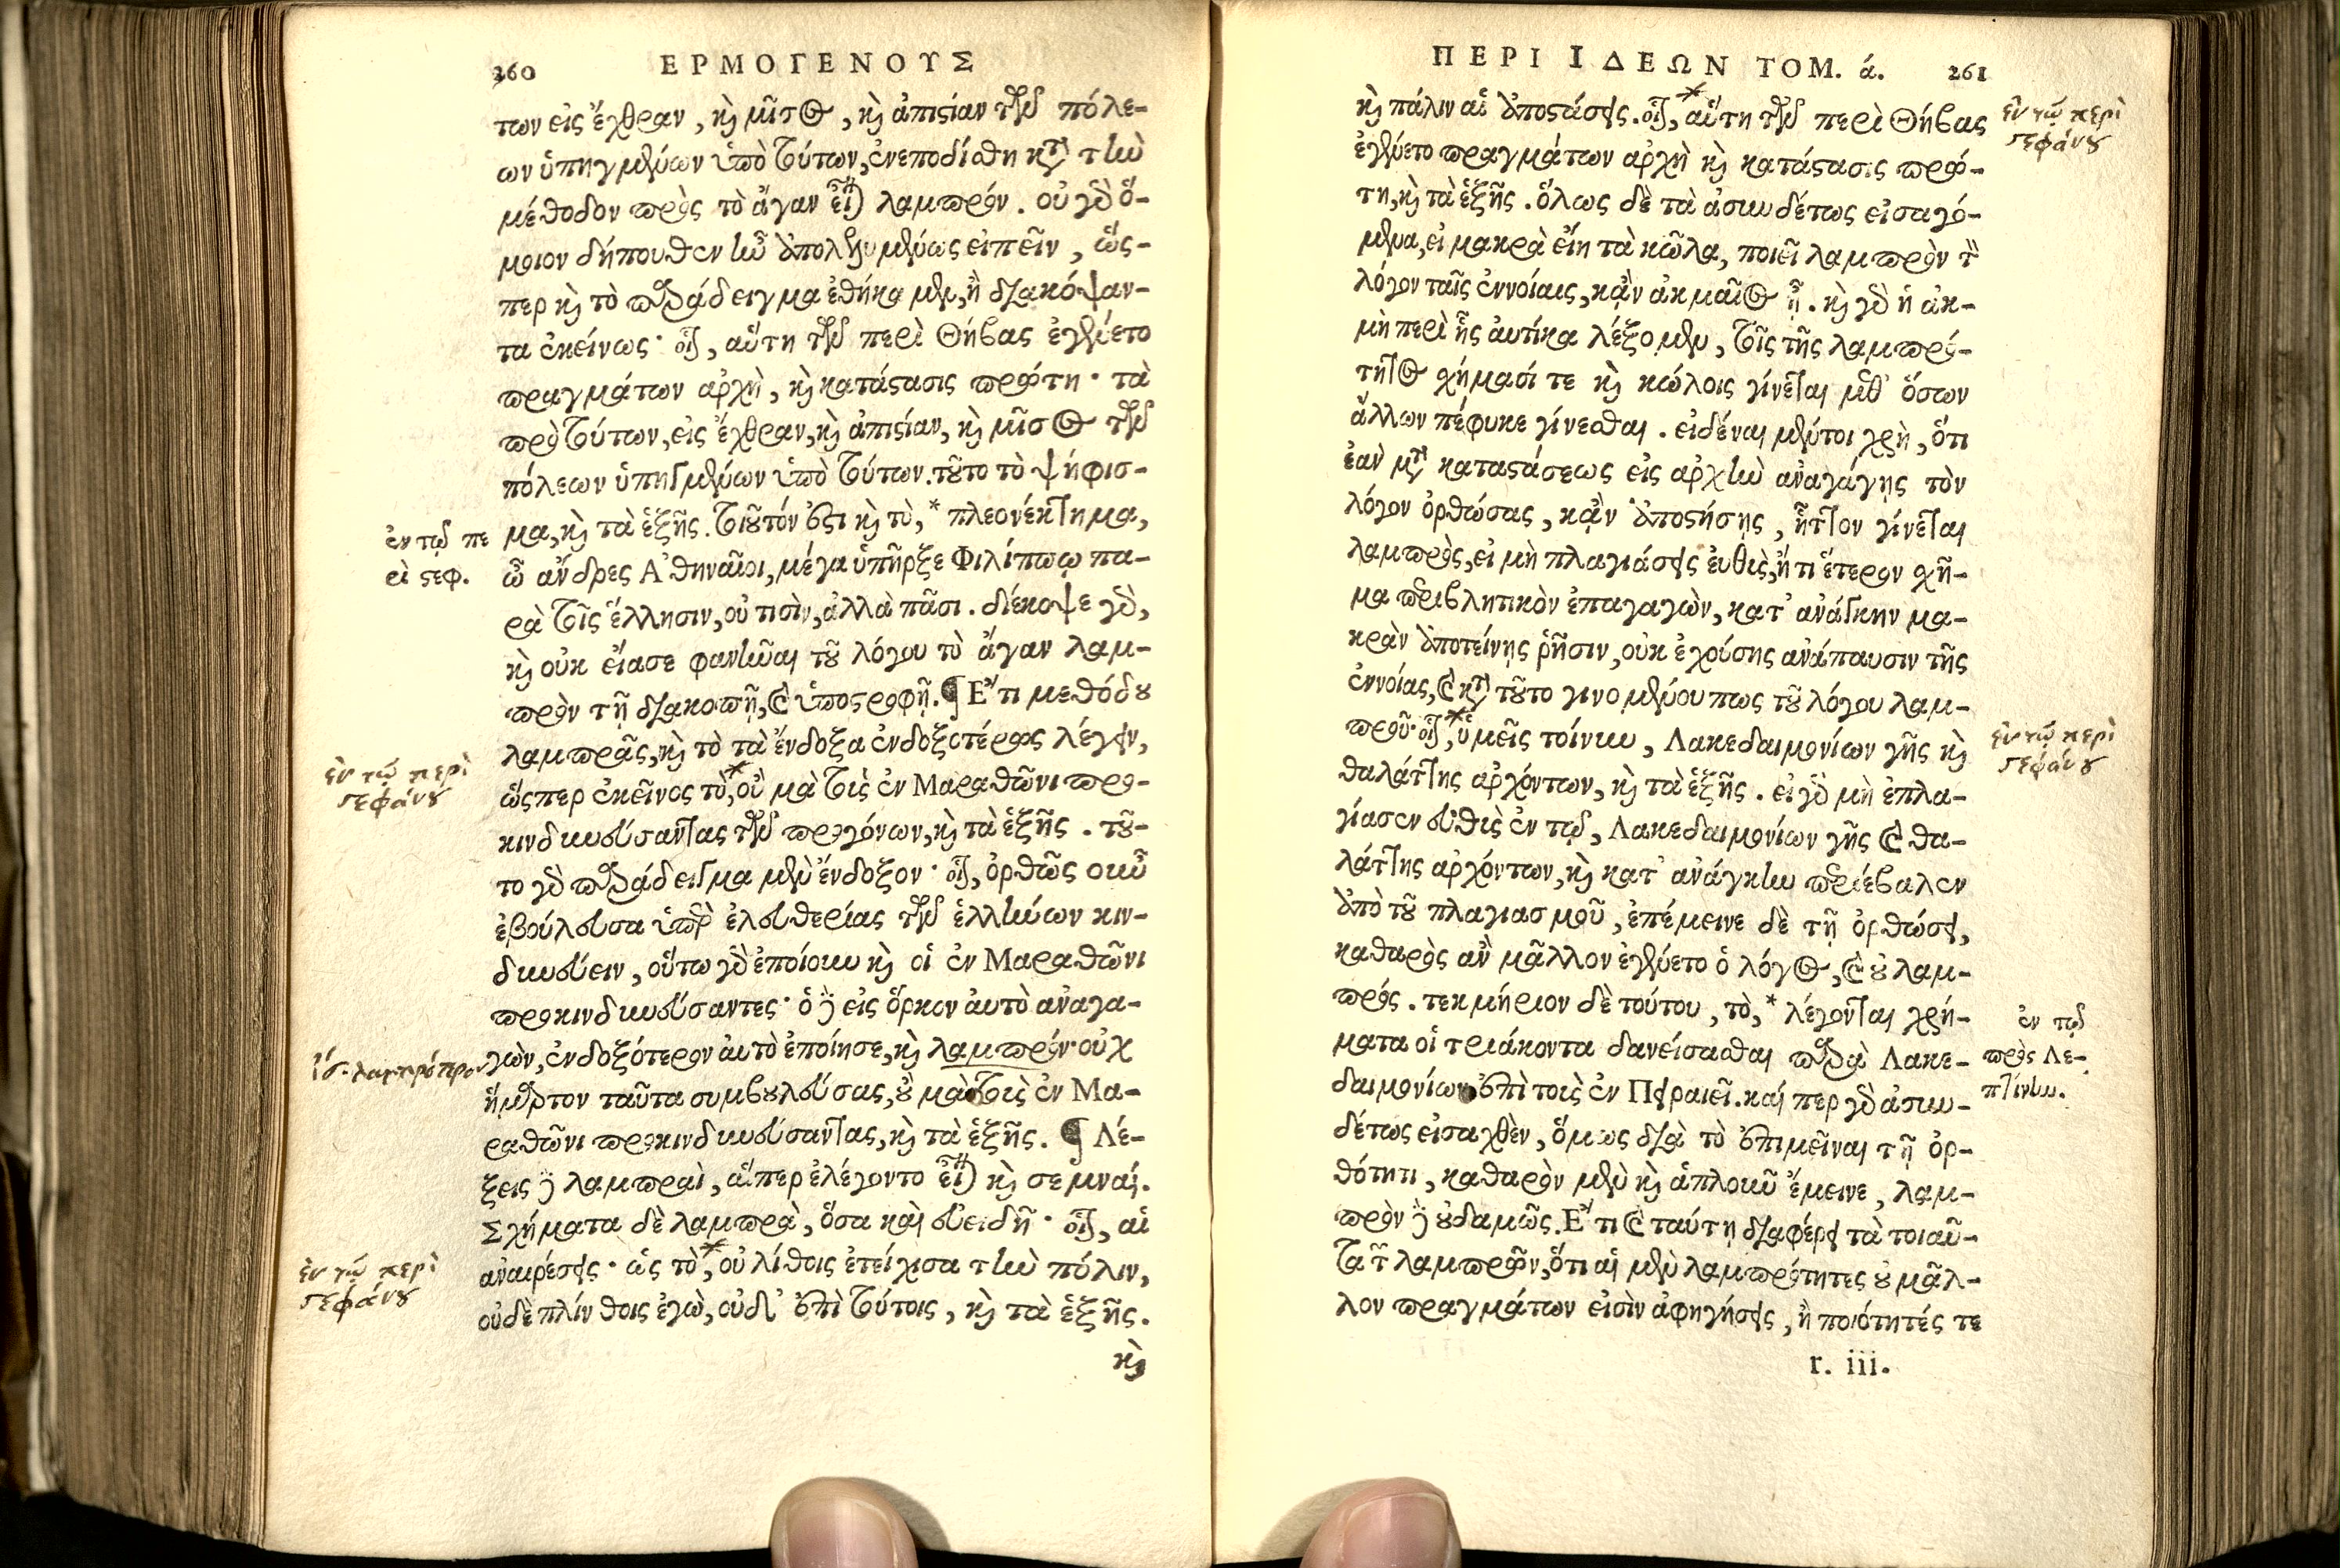 260 ΕΡΜΟΓΕΝΟΥΣ
των εἰς ἔχθραν, καὶ μῖσος, καὶ ἀπιστίαν τῶν πόλε-
ων ὑπηγμένων ὑπὸ τούτων, ἐνεποδίσθη κατὰ τὴν
μέθοδον πρὸς τὸ ἄγαν εἶναι λαμπρόν. οὐ γὰρ ὅ-
μοιον δήπουθεν ἦν ἀπολελυμένως εἰπεῖν, ὥς-
περ καὶ τὸ παράδειγμα ἐθήκαμεν, ἢ διακόψαν-
τα ἐκείνως· οἷον, αὕτη τῶν περὶ Θήβας ἐγένετο
πραγμάτων ἀρχὴ, καὶ κατάστασις πρώτη· τὰ
πρὸ τούτων, εἰς ἔχθραν, καὶ ἀπιστίαν, καὶ μῖσος τῶν
πόλεων ὑπηγμένων ὑπὸ τούτων. τοῦτο τὸ ψήφισ-
μα, καὶ τὰ ἑξῆς. τοιοῦτόν ἐστι καὶ τὸ, * πλεονέκτημα,
ἐν τῷ πε
ρὶ στεφ.
ὦ ἄνδρες Ἀθηναῖοι, μέγα ὑπῆρξε Φιλίππῳ πα-
ρὰ τοῖς ἕλλησιν, οὐ τισὶν, ἀλλὰ πᾶσι. διέκοψε γὰρ,
καὶ οὐκ εἴασε φανῆναι τοῦ λόγου τὸ ἄγαν λαμ-
πρὸν τῇ διακοπῇ, καὶ ὑποστροφῇ. ¶ Ἔτι μεθόδου
λαμπρᾶς, καὶ τὸ τὰ ἔνδοξα ἐνδοξοτέρως λέγειν,
ὥςπερ ἐκεῖνος τὸ,* οὐ μὰ τοὺς ἐν Μαραθῶνι προ-
ἐν τῷ περὶ
στεφάνου
κινδυνεύσαντας τῶν προγόνων, καὶ τὰ ἑξῆς. τοῦ-
το γὰρ παράδειγμα μὲν ἔνδοξον· οἷον, ὀρθῶς οὖν
ἐβούλευσα ὑπὲρ ἐλευθερίας τῶν ἑλλήνων κιν-
δυνεύειν, οὕτω γὰρ ἐποίουν καὶ οἱ ἐν Μαραθῶνι
προκινδυνεύσαντες· ὁ δὲ εἰς ὅρκον αὐτὸ ἀναγα-
γὼν, ἐνδοξότερον αὐτὸ ἐποίησε, καὶ λαμπρόν· οὐχ
ἥμαρτον ταῦτα συμβουλεύσας, οὐ μὰ τοὺς ἐν Μα-
ραθῶνι προκινδυνεύσαντας, καὶ τὰ ἑξῆς. ¶ Λέ-
ξεις δὲ λαμπραὶ, αἵπερ ἐλέγοντο εἶναι καὶ σεμναί.
Σχήματα δὲ λαμπρὰ, ὅσα καὶ εὐειδῆ· οἷον, αἱ
ἀναιρέσεις· ὡς τὸ,* οὐ λίθοις ἐτείχισα τὴν πόλιν,
ἐν τῷ περὶ
στεφάνου
οὐδὲ πλίνθοις ἐγὼ, οὐδ' ἐπὶ τούτοις, καὶ τὰ ἑξῆς.
καὶ
ΠΕΡΙ ΙΔΕΩΝ ΤΟΜ. ά. 261
καὶ πάλιν αἱ ἀποστάσεις. οἷον,* αὕτη τῶν περὶ Θήβας
ἐν τῷ περὶ
στεφάνου
ἐγένετο πραγμάτων ἀρχὴ καὶ κατάστασις πρώ-
τη, καὶ τὰ ἑξῆς. ὅλως δὲ τὰ ἀσυνδέτως εἰσαγό-
μενα, εἰ μακρὰ εἴη τὰ κῶλα, ποιεῖ λαμπρὸν τὸν
λόγον ταῖς ἐννοίαις, κἂν ἀκμαῖος ᾖ. καὶ γὰρ ἡ ἀκ-
μὴ περὶ ἧς αὐτίκα λέξομεν, τοῖς τῆς λαμπρό-
τητος σχήμασί τε καὶ κώλοις γίνεται μεθ' ὅσων
ἄλλων πέφυκε γίνεσθαι. εἰδέναι μέντοι χρὴ, ὅτι
ἐὰν μετὰ καταστάσεως εἰς ἀρχὴν ἀναγάγῃς τὸν
λόγον ὀρθώσας, κἂν ἀποστήσῃς, ἧττον γίνεται
λαμπρὸς, εἰ μὴ πλαγιάσεις εὐθὺς, ἤ τι ἕτερον σχῆ-
μα περιβλητικὸν ἐπαγαγὼν, κατ' ἀνάγκην μα-
κρὰν ἀποτείνῃς ῥῆσιν, οὐκ ἐχούσης ἀνάπαυσιν τῆς
ἐννοίας, καὶ κατὰ τοῦτο γινομένου πως τοῦ λόγου λαμ-
προῦ· οἷον,* ὑμεῖς τοίνυν, Λακεδαιμονίων γῆς καὶ
ἐν τῷ περὶ
στεφάνου
θαλάττης ἀρχόντων, καὶ τὰ ἑξῆς. εἰ γὰρ μὴ ἐπλα-
γίασεν εὐθὺς ἐν τῷ, Λακεδαιμονίων γῆς καὶ θα-
λάττης ἀρχόντων, καὶ κατ' ἀνάγκην περιέβαλεν
ἀπὸ τοῦ πλαγιασμοῦ, ἐπέμεινε δὲ τῇ ὀρθώσει,
καθαρὸς ἂν μᾶλλον ἐγένετο ὁ λόγος, καὶ οὐ λαμ-
πρός. τεκμήριον δὲ τούτου, τὸ,* λέγονται χρή-
ματα οἱ τριάκοντα δανείσασθαι παρὰ Λακε-
ἐν τῷ
πρὸς Λε-
πτίνην.
δαιμονίων ἐπὶ τοὺς ἐν Πειραιεῖ. καίπερ γὰρ ἀσυν-
δέτως εἰσαχθὲν, ὅμως διὰ τὸ ἐπιμεῖναι τῇ ὀρ-
θότητι, καθαρὸν μὲν καὶ ἁπλοῦν ἔμεινε, λαμ-
πρὸν δὲ οὐδαμῶς. Ἔτι καὶ ταύτῃ διαφέρει τὰ τοιαῦ-
τα τῶν λαμπρῶν, ὅτι αἱ μὲν λαμπρότητες οὐ μᾶλ-
λον πραγμάτων εἰσὶν ἀφηγήσεις, ἢ ποιότητές τε
r. iii.